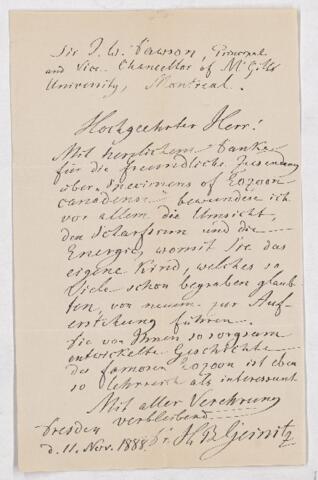 Sir J. W. Dawson, Principal
and Vice-Chancellor of McGill
University, Montreal.
Hochgeehrter Herr!
Mit herzlichem Danke
für die freundliche Zusendung
über Specimens of Eozoon
canadense bewundere ich
vor allem die Umsicht,
den Scharfsinn und die
Energie, womit Sie das
eigene Kind, welches so
Viele schon begraben glaub-
ten, von neuem zur Auf-
erstehung führen.
Die von Ihnen so sorgsam
entwickelte Geschichte
des famosen Eozoon ist eben
so lehrreich als interessant.
Mit aller Verehrung
verbleibend
Dresden
d. 11. Nov. 1888. Dr. H B Geinitz